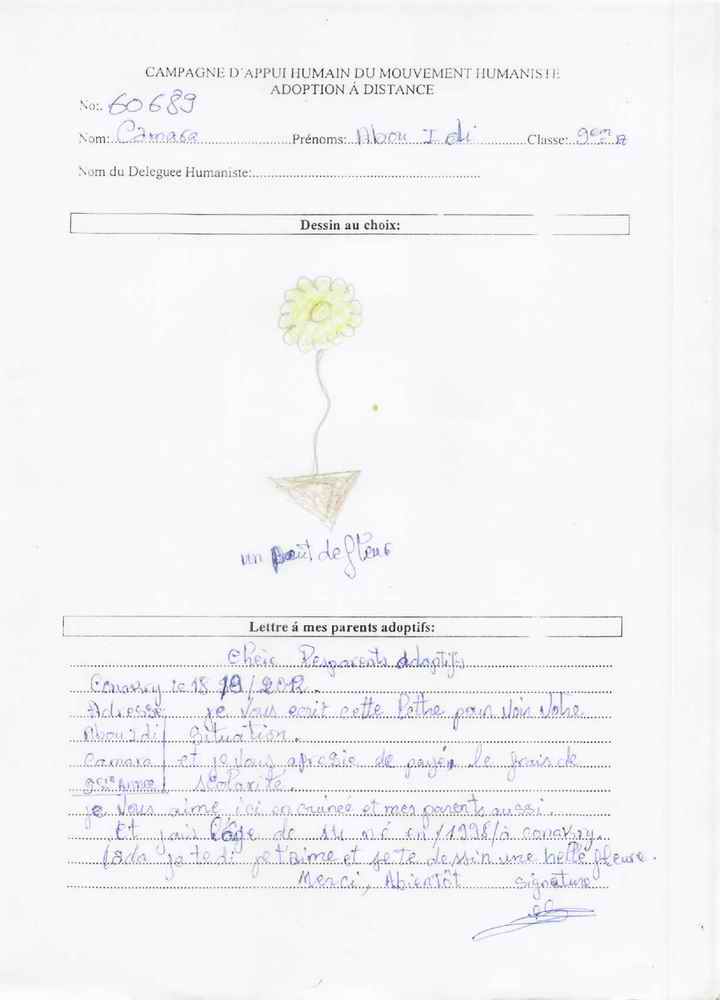 CAMPAGNE D'APPUI HUMAIN DU MOUVEMENT HUMANISTE
ADOPTION Á DISTANCE
No:. 60689
Nom: Camara Prénoms: Abou Idi Classe: 9em
Nom du Deleguee Humaniste:
Dessin au choix:
un de fleur
Lettre á mes parents adoptifs:
adoptifs
Conakry le 18 /2012.
Adresse je vous ecrit cette lettre pour voir votre
Abou Idi situation.
Camara et je vous apresie de payén le frais de
Année scolarité.
je vous aime ici en et mes parents aussi.
Et jais l'age de né en /1998/à conakry.
je te di je t'aime et je te dessin une belle fleure.
Merci, Abientôt signature